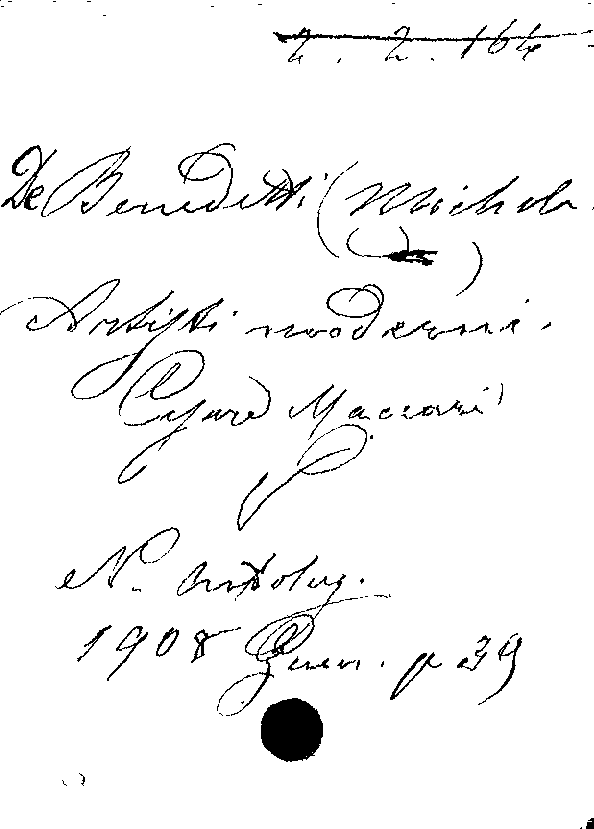 2. 2. 164
De Benedetti (Michele
)
Artisti moderni.
Cesare Maccari
N. Antolog.
1908 Genn. p 39